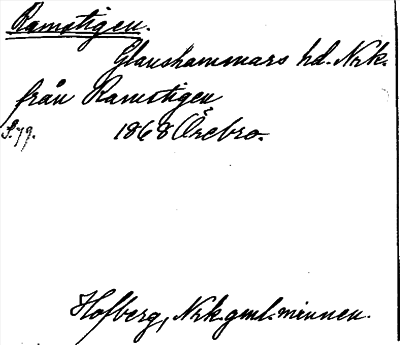 Ramstigen.
Glanshammars hd. Nrk.
från Ramstigen
S. 79. 1868 Örebro.
Hofberg, Nrk. gml. minnen.